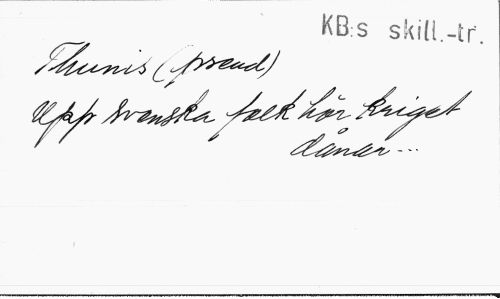 KB:s skill.-tr.
Thunis (pseud)
Upp svenska folk hör kriget
dånar...